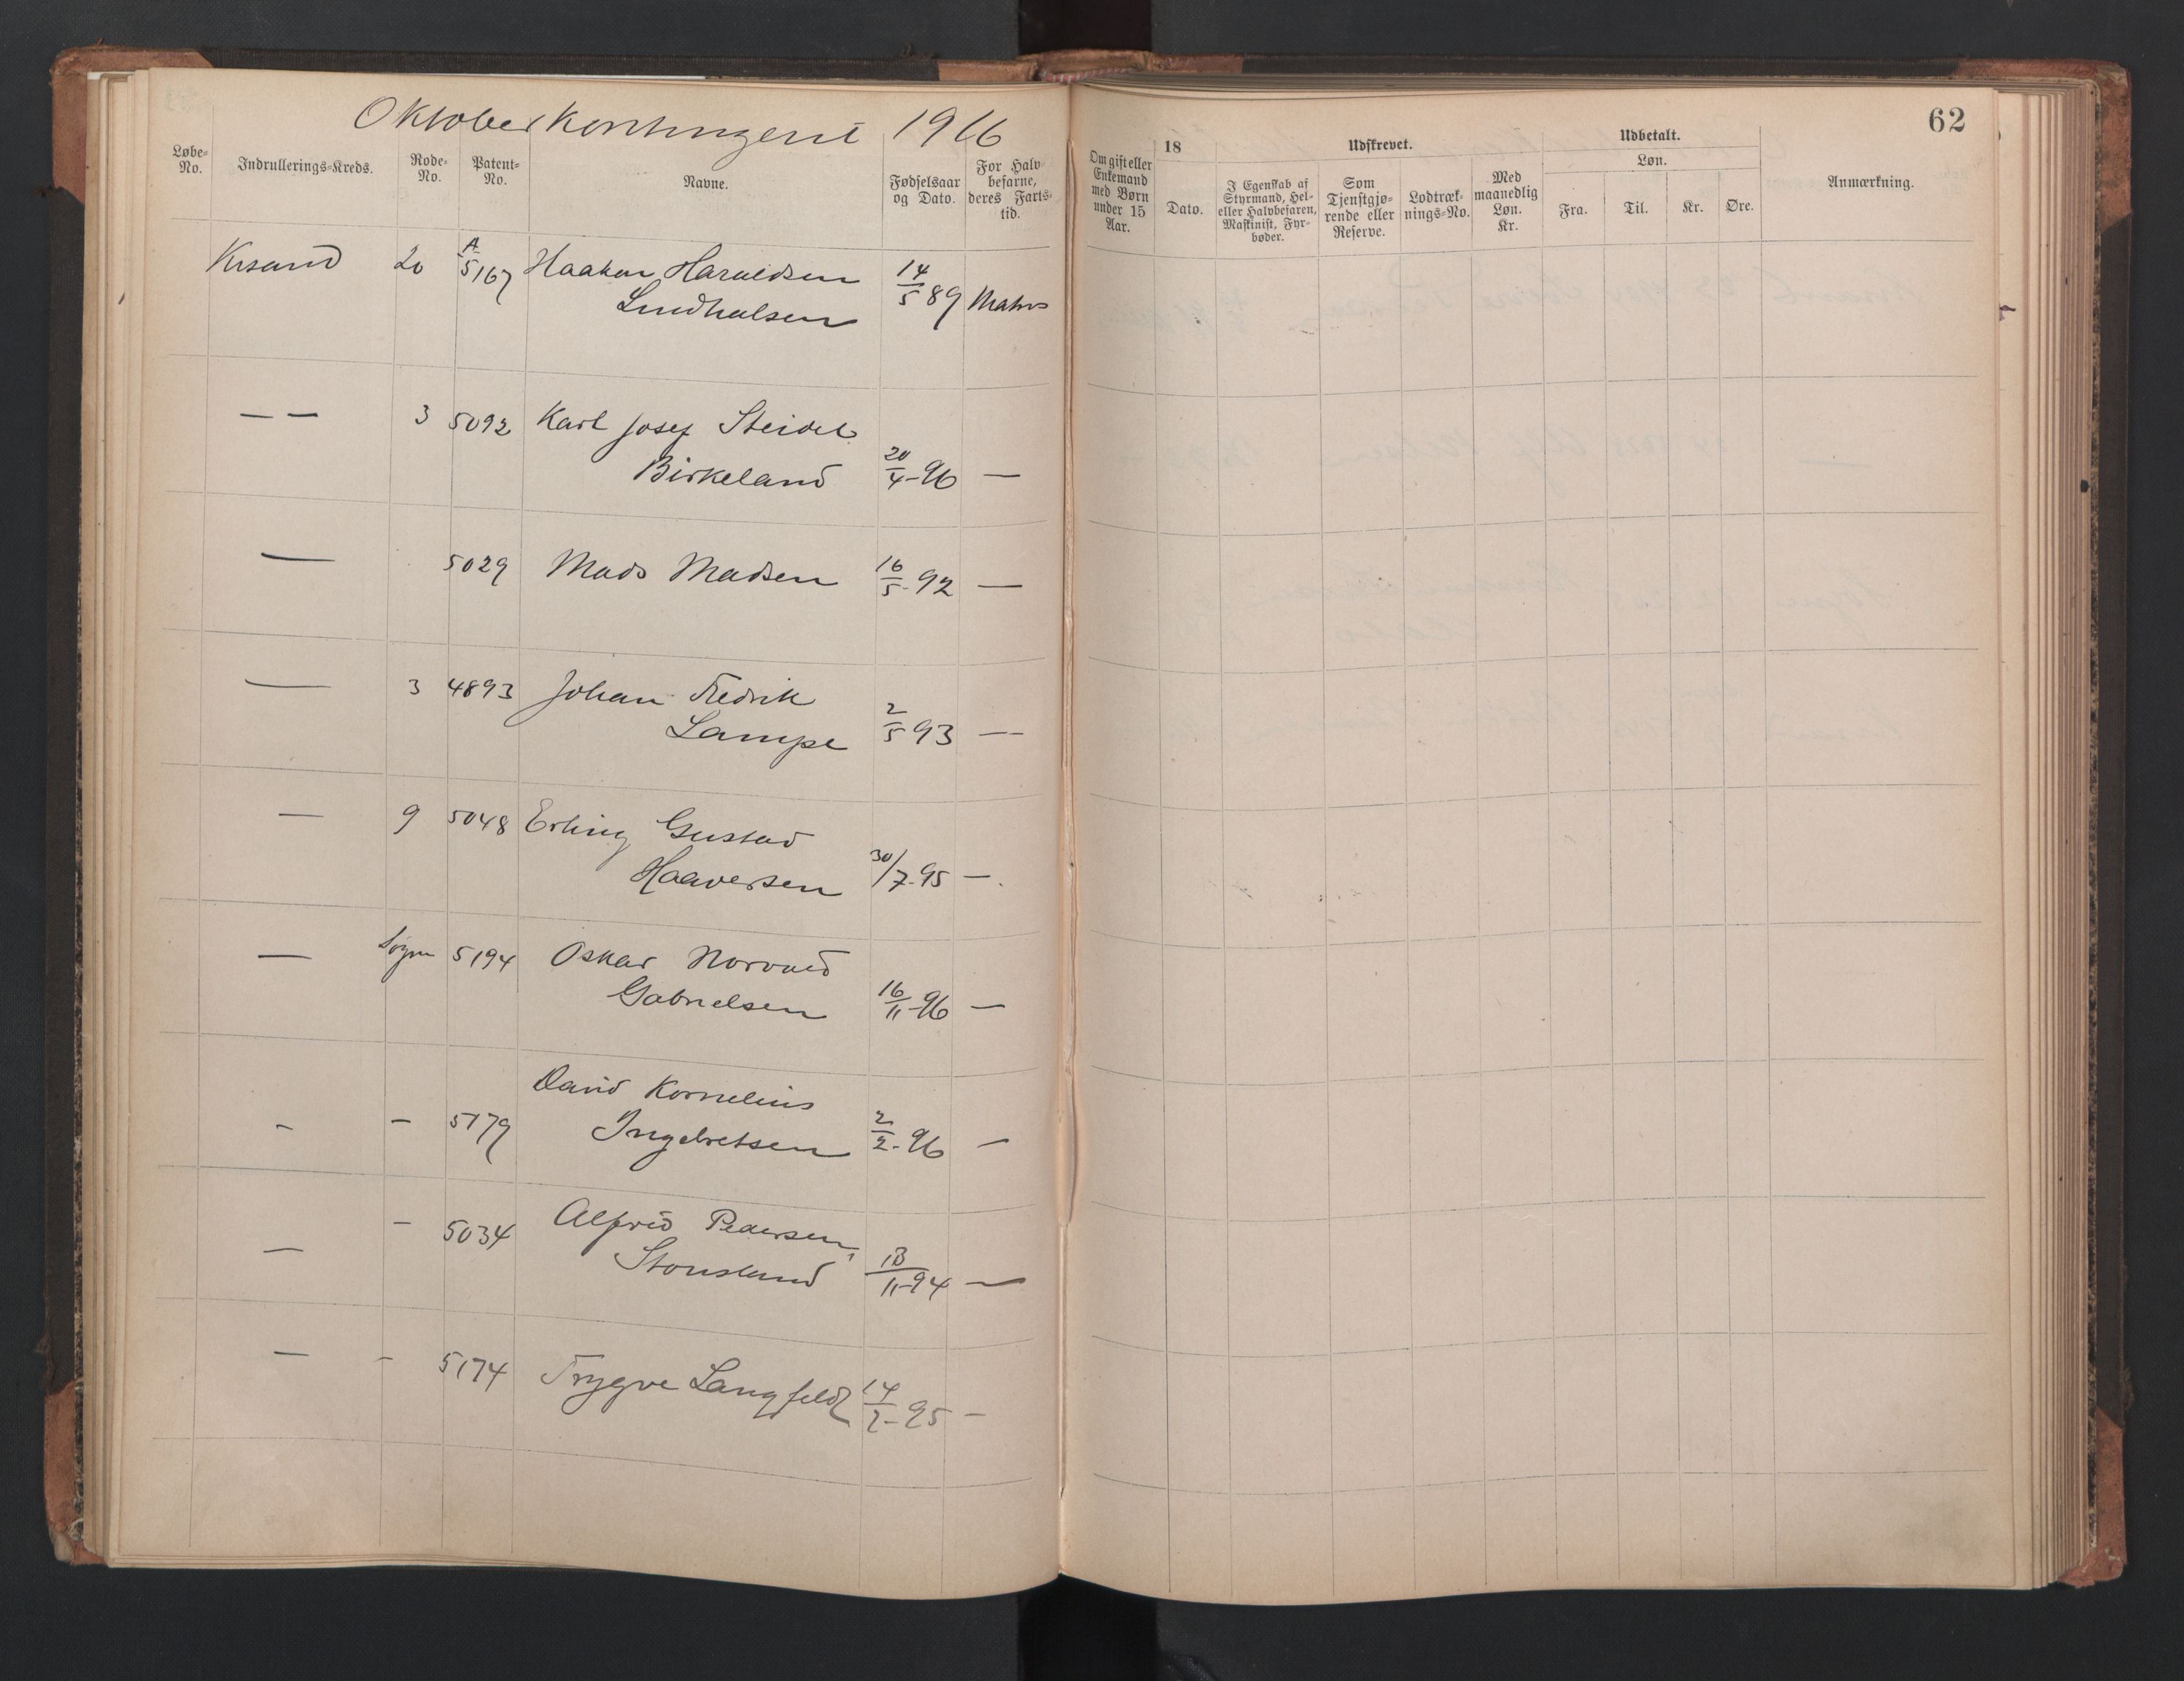 Oktober Kontingent 1916
62
Løbe-No.
Indrullerings-Kreds.
Rode-No.
Patent-No.
Navne.
Fødselsaar og Dato.
For Halvbefarne, deres Fartstid.
Om gift eller Enkemand med Børn under 15 Aar.
18
Dato.
Udskrevet.
I Egenskab af Styrmand, Hel- eller Halvbefaren, Maskinist, Fyrbøder.
Som Tjenstgjørende eller Reserve.
Lodtræknings-No.
Med maanedlig Løn. Kr.
Udbetalt.
Løn.
Fra.
Til.
Kr.
Øre.
Anmærkning.
Krsand 20 A 5167 Haakon Haraldsen 14/5 89 Matros
— — 3 5092 Karl Josef Steidel
Birkeland 20/4-96 —
— 5029 Mads Madsen 16/5-92 —
— 3 4893 Johan Fredrik
Lampe 2/5 93 —
— 9 5048 Erling Gustav
Haaversen 30/7-95 —
— Søgne 5194 Oskar Norvald
Gabrielsen 16/11-96 —
David Kornelius
- - 5179 Ingebretsen 2/2-96 —
— - 5034 Alfred Pedersen
11-94 —
— - 5174 Trygve Langfeldt 14/2-95 —